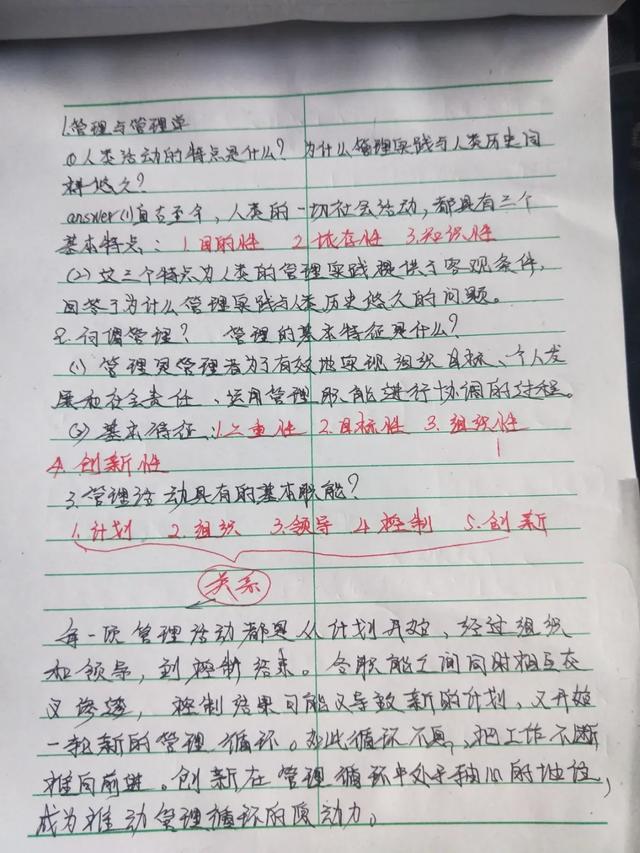 1.管理与管理学
①人类活动的特点是什么？为什么管理实践与人类历史同
样悠久？
answer(1)自古至今，人类的一切社会活动，都具有三个
基本特点：1.目的性 2.依存性 3.知识性
(2)这三个特点为人类的管理实践提供了客观条件，
回答了为什么管理实践与人类历史悠久的问题。
2.何谓管理？管理的基本特征是什么？
(1)管理是管理者为了有效地实现组织目标、个人发
展和社会责任、运用管理职能进行协调的过程。
(2)基本特征：1.二重性 2.目标性 3.组织性
4.创新性
3.管理活动具有的基本职能？
1.计划 2.组织 3.领导 4.控制 5.创新
关系
每一项管理活动都是从计划开始，经过组织
和领导，到控制结束。各职能之间同时相互交
叉渗透，控制结果可能又导致新的计划，又开始
一轮新的管理循环。如此循环不息，把工作不断
推向前进。创新在管理循环中处于轴心的地位，
成为推动管理循环的原动力。